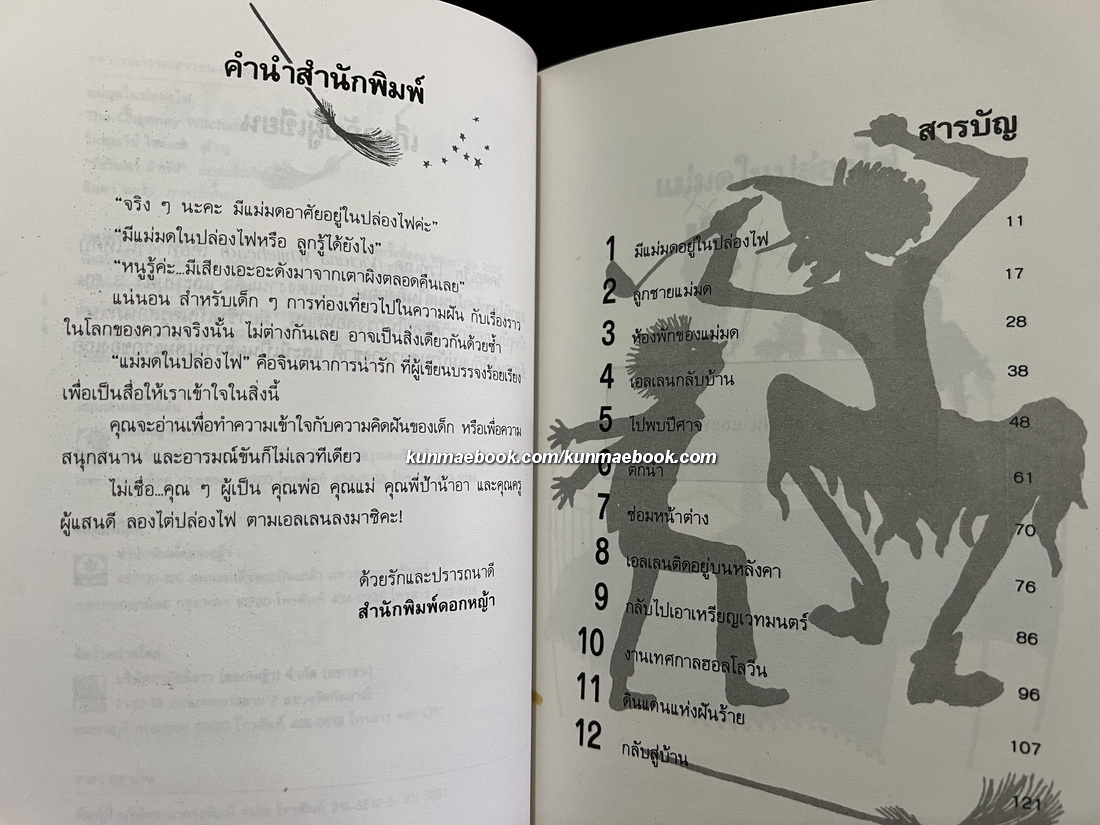 คำนำสำนักพิมพ์
“จริง ๆ นะคะ มีแม่มดอาศัยอยู่ในปล่องไฟค่ะ”
“มีแม่มดในปล่องไฟหรือ ลูกรู้ได้ยังไง”
“หนูรู้ค่ะ...มีเสียงเอะอะดังมาจากเตาผิงตลอดคืนเลย”
แน่นอน สำหรับเด็ก ๆ การท่องเที่ยวไปในความฝัน กับเรื่องราว
ในโลกของความจริงนั้น ไม่ต่างกันเลย อาจเป็นสิ่งเดียวกันด้วยซ้ำ
“แม่มดในปล่องไฟ” คือจินตนาการน่ารัก ที่ผู้เขียนบรรจงร้อยเรียง
เพื่อเป็นสื่อให้เราเข้าใจในสิ่งนี้
คุณจะอ่านเพื่อทำความเข้าใจกับความคิดฝันของเด็ก หรือเพื่อความ
สนุกสนาน และอารมณ์ขันก็ไม่เลวทีเดียว
ไม่เชื่อ...คุณ ๆ ผู้เป็น คุณพ่อ คุณแม่ คุณพี่ป้าน้าอา และคุณครู
ผู้แสนดี ลองไต่ปล่องไฟ ตามเอลเลนลงมาซิคะ!
ด้วยรักและปรารถนาดี
สำนักพิมพ์ดอกหญ้า
สารบัญ
1 มีแม่มดอยู่ในปล่องไฟ 11
2 ลูกชายแม่มด 17
3 ห้องพักของแม่มด 28
4 เอลเลนกลับบ้าน 38
5 ไปพบปีศาจ 48
6 ตกน้ำ 61
7 ซ่อมหน้าต่าง 70
8 เอลเลนติดอยู่บนหลังคา 76
9 กลับไปเอาเหรียญเวทมนตร์ 86
10 งานเทศกาลฮอลโลวีน 96
11 ดินแดนแห่งฝันร้าย 107
12 กลับสู่บ้าน 121
kunmaebook.com/kunmaebook.com